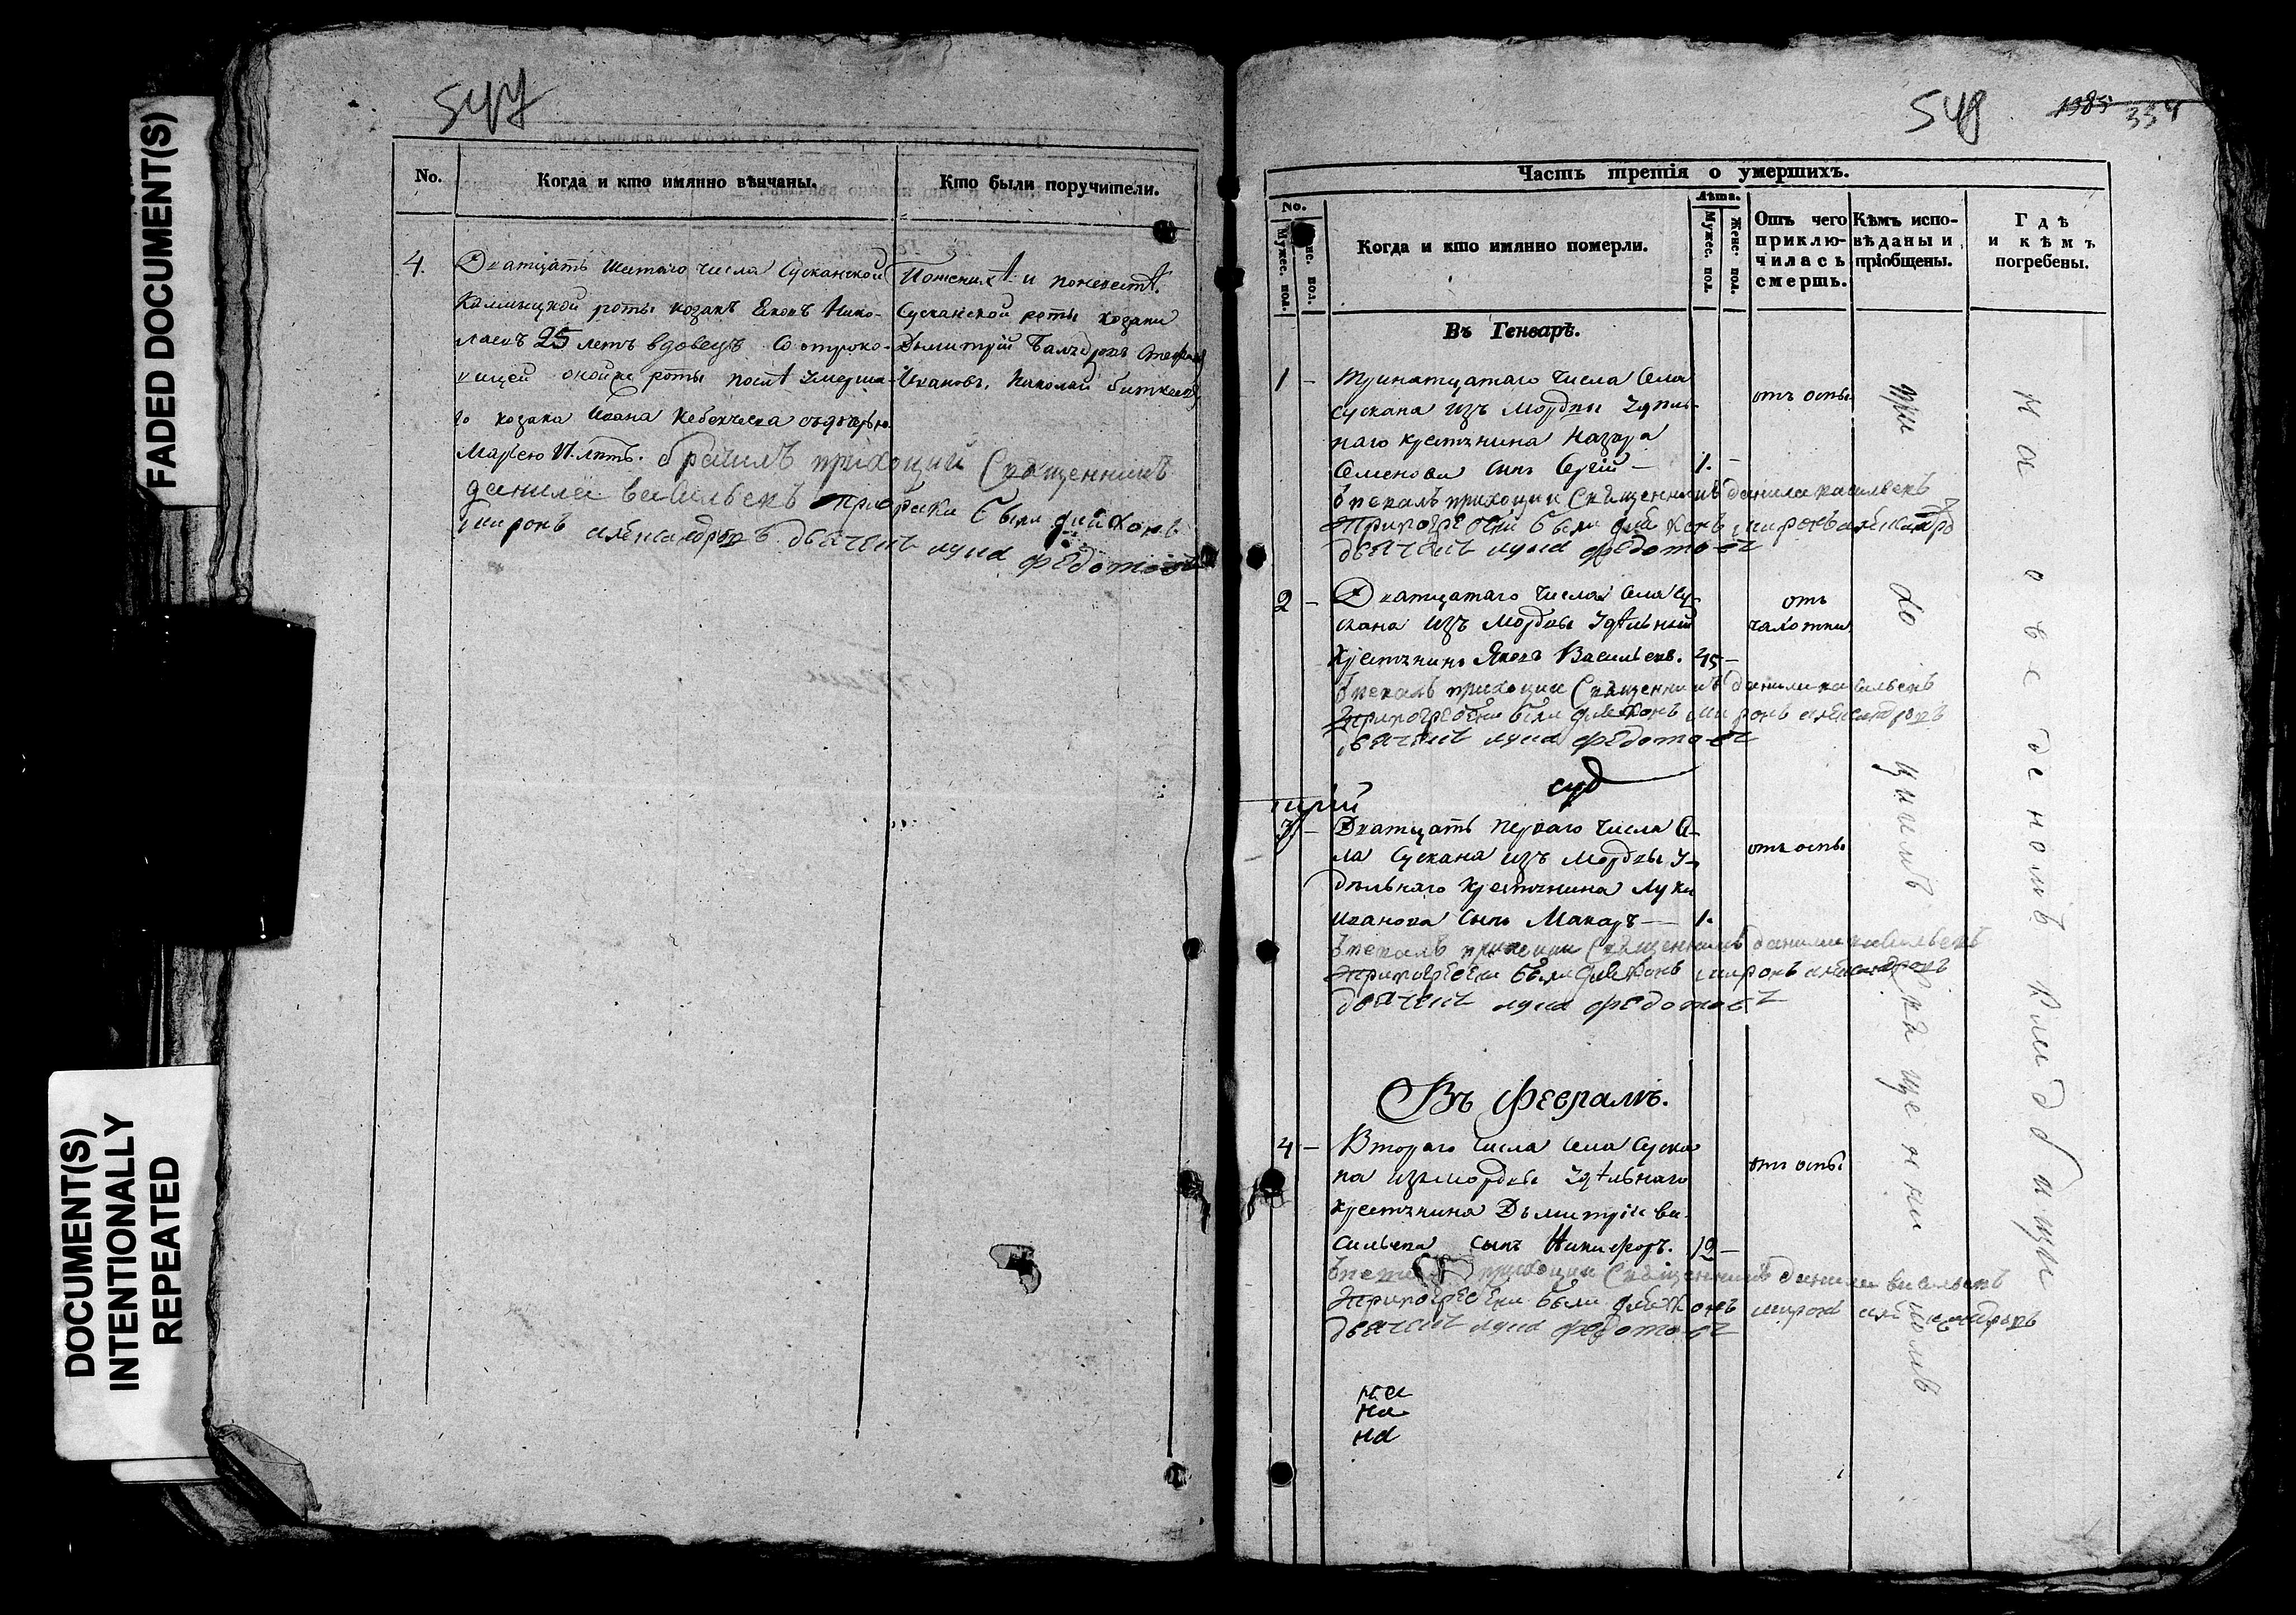 FADED DOCUMENT(S)
DOCUMENT(S)
INTENTIONALLY
REPEATED
547
No.
Когда и кто имянно вѣнчаны.
Кто были поручители.
4.
Дватцать шетаго числа Сусканской
Калмыцкой роты козакъ Яковъ Нико-
лаевъ 25 летъ вдовецъ Со отроко-
вицей оной же роты послѣ умерша-
го козака Ивана съ дочерью
Марьею
приходций Священникъ
данила васильевъ при браки были дийконъ
миронъ александровъ дьячекъ лука федотовъ
По женихѣ и по невестѣ
Сусканской роты козаки
Дьмитрій
Ивановъ. Николай
548
1385
334
Часть третія о умершихъ.
No.
Мужес. пол.
Женс. пол.
Когда и кто имянно померли.
Лѣта.
Мужес. пол.
Женс. пол.
Отъ чего
приклю-
чилась
смерть.
Кѣмъ испо-
вѣданы и
пріобщены.
Гдѣ
и кѣмъ
погребены.
Въ Генварѣ.
1 -
Тринатцатаго числа Села
Сускана изъ Мордвы Удѣль-
наго крестянина Назара
Семенова сынъ Сергій —
1. -
отъ оспы
приходции Священникъ данила васильевъ
при погребени были дийконъ миронъ александро
дьячекъ лука федотовъ
2 -
Дватцатаго числа Села Су-
скана изъ Мордвы Удѣльный
Крестянинъ Яковъ Васильевъ.
45 -
отъ
чахотки
приходции Священникъ данила васильевъ
при погребени были дийконъ миронъ александровъ
дьячекъ лука федотовъ
суд
3 -
Дватцать перваго числа Се-
ла Сускана изъ Мордвы У-
дѣльнаго крестянина Луки
Иванова сынъ Макаръ —
1.
отъ оспы
приходции Священникъ данила васильевъ
при погребени были дийконъ миронъ александровъ
дьячекъ лука федотовъ
Въ Февралѣ.
4 -
Втораго числа села Суска
на изъ мордвы Удѣльнаго
крестянина Дьмитрія Ва-
сильева сынъ Никифоръ.
12 -
отъ оспы
приходции Священникъ данила васильевъ
при погребени были дийконъ миронъ александровъ
дьячекъ лука федотовъ
на
на
на
при хо цкимъ священникомъ
на оведеномъ кладбищи